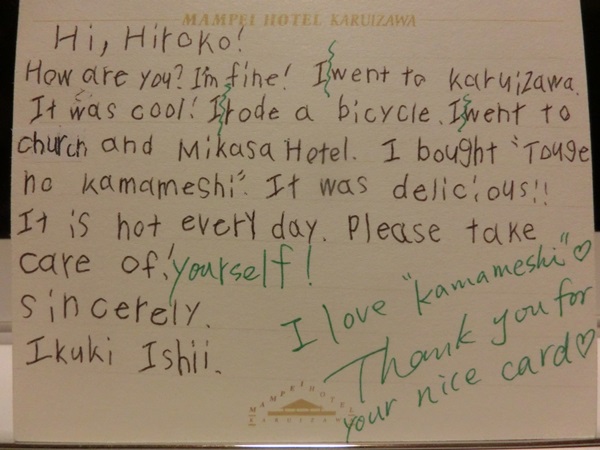 MAMPEI HOTEL KARUIZAWA
Hi, Hiroko!
How are you? I'm fine! I went to karuizawa.
It was cool! I rode a bicycle. I went to
church and Mikasa Hotel. I bought "Touge
no kamameshi". It was delicious!!
It is hot every day. Please take
care of yourself!
sincerely.
Ikuki Ishii.
I love "kamameshi" ♡
Thank you for
your nice card ♡
MAMPEI HOTEL
KARUIZAWA